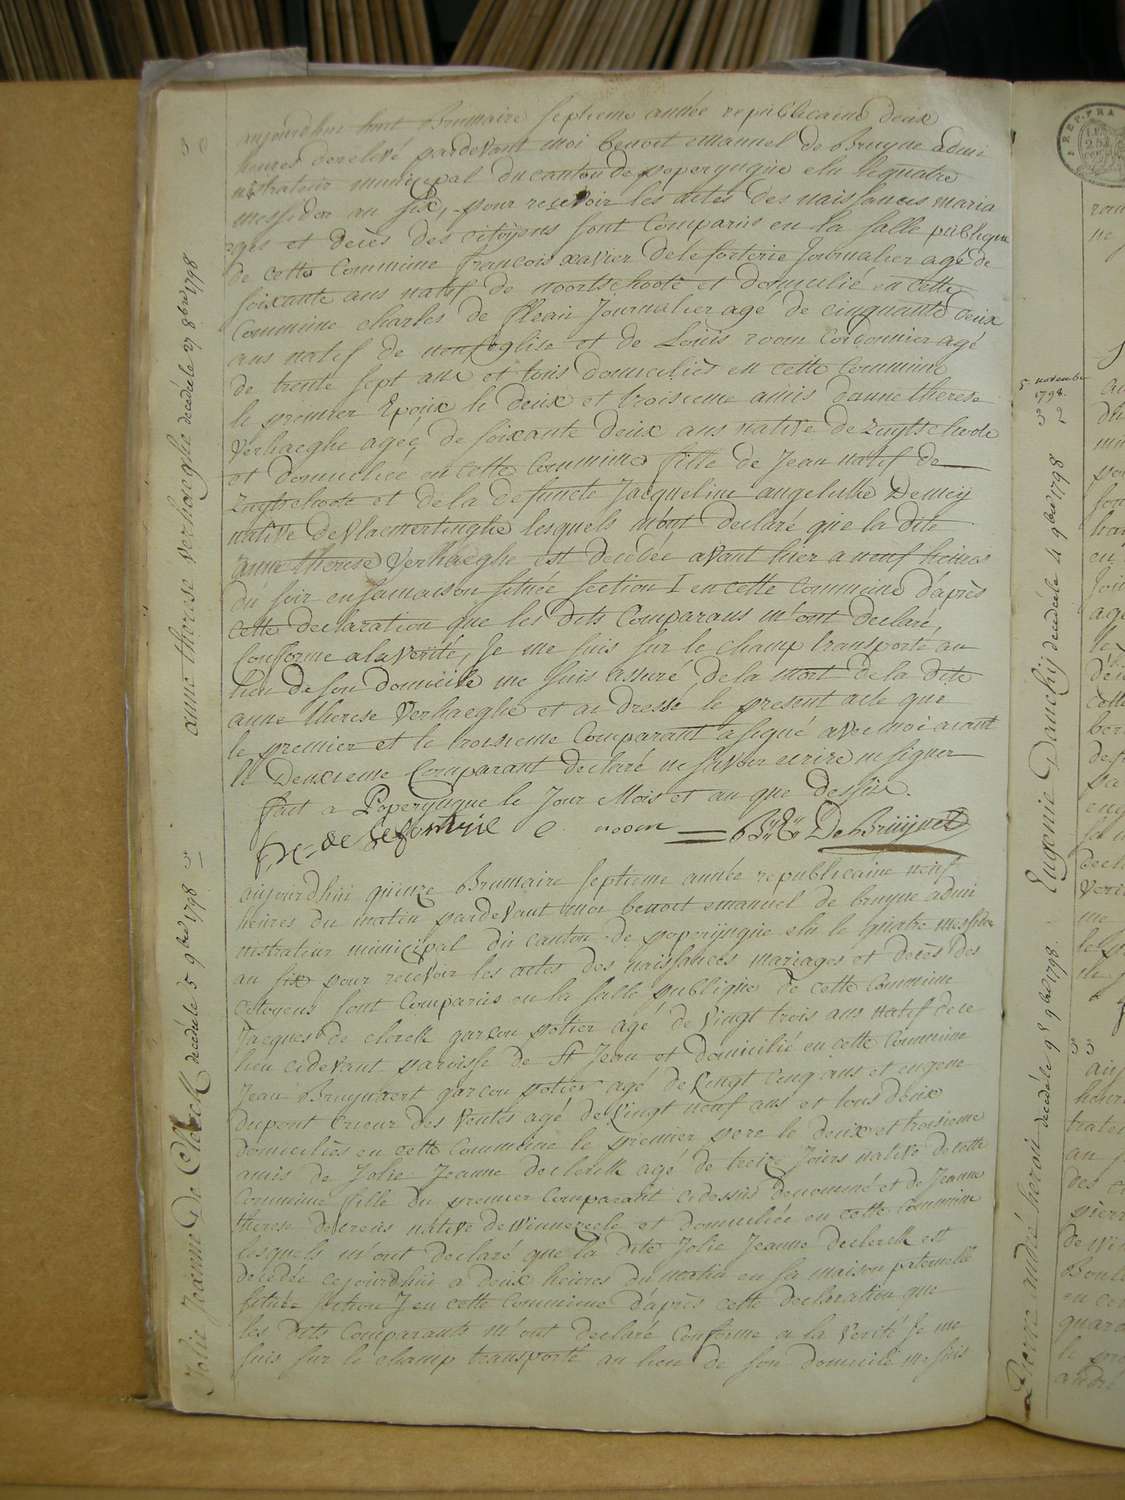 aujourdhui huit Brumaire septieme année republicaine deux
heures de relevé pardevant moi benoit emanuel de Bruyne admi
nistrateur municipal du canton de poperyngue elu le quatre
messidor an six, pour recevoir les actes des naissances maria
ages et decès des citoyens sont Comparus en la salle publique
de cette Commune francois xavier de le forterie Journalier agé de
soixante ans natif de noortschoote et domicilié en cette
Commune charles de Journalier agé de cinquante deux
ans natif de neufeglise et de Louis room Cordonnier agé
de trente sept ans et tous domiciliés en cette Commune
le premier Epoux le deux et troisieme amis danne therese
Verhaeghe agee de soixante deux ans native de Zuytschoote
et domiciliée en cette Commune fille de Jean natif de
Zuytschoote et de la defuncte Jacqueline angelique
native de Vlaemertinghe lesquels m'ont declaré que la dite
anne therese Verhaeghe est decedée avant hier a neuf heures
du soir en sa maison située section I en cette Commune d'après
cette declaration que les dits Comparans m'ont declaré
Conforme a la verité, Je me suis sur le champ transporté au
lieu de son domicile me suis assuré de la mort de la dite
anne therese Verhaeghe et ai dressé le present acte que
le premier et le troisieme Comparant a signé avec moi aiant
le Deuxieme Comparant declaré ne savoir ecrire ni signer
fait a Poperyngue le Jour Mois et an que dessus.
room DeBruyne
aujourdhui quinze Brumaire septieme année republicaine neuf
heures du matin pardevant moi benoit emanuel de bruyne admi
nistrateur municipal du canton de poperyngue elu le quatre messidor
an six pour recevoir les actes des naissances mariages et decès des
Citoyens sont Comparus en la salle publique de cette Commune
Jacques de clerck garcon potier agé de vingt trois ans natif de ce
lieu cidevant paroisse de St Jean et domicilié en cette Commune
Jean Bruynaert garcon potier agé de vingt cinq ans et eugene
dupont crieur des ventes agé de vingt neuf ans et tous deux
domiciliés en cette Commune le premier pere le deux et troisieme
amis de Jolie Jeanne declerck agé de treize Jours native de cette
Commune fille du premier Comparant cidessus denommé et de Jeanne
therese native de winnezeele et domiciliée en cette Commune
lesquels m'ont declaré que la dite Jolie Jeanne declerck est
decedée cejourdhui a deux heures du matin en sa maison paternelle
située section J en cette Commune d'après cette declaration que
les dits Comparants m'ont declaré Conforme a la Verité Je me
suis sur le champ transporté au lieu de son domicile me suis
anne therese verhaeghe decedée le 27 8bre 1798
Jolie Jeanne De Clerck decedée le 5 9bre 1798
5 novembre
1798.
Eugenie Danchy decedée le 4 9bre 1798
Pierre andré decedé le 9bre 1798
REP. FRA